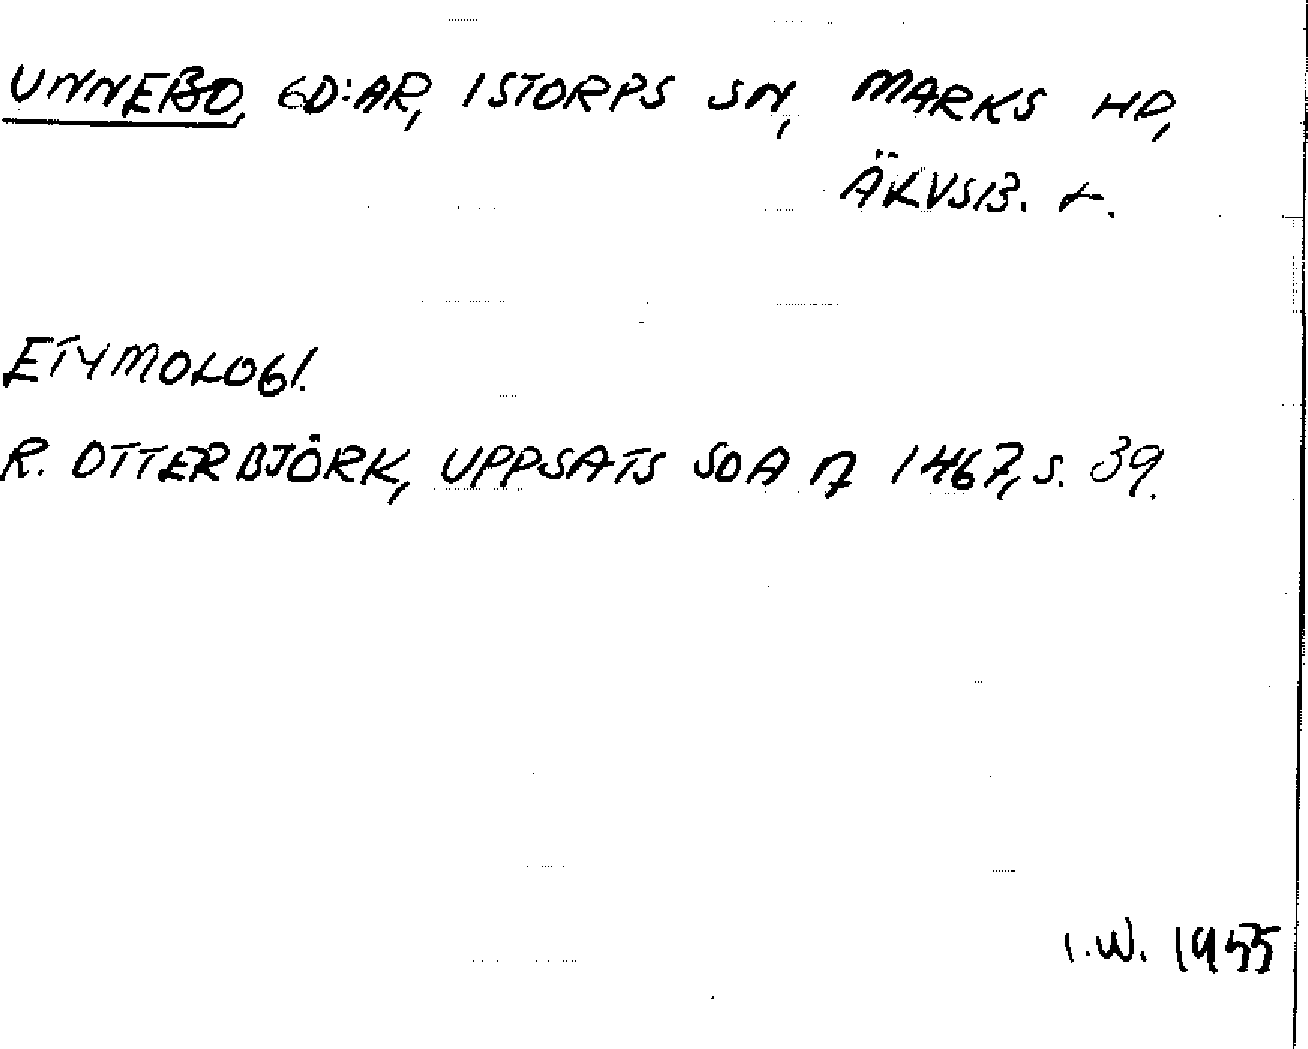 UNNEBO, GD:AR, ISTORPS SN, MARKS HD,
ÄLVSB. L.
ETYMOLOGI.
R. OTTERBJÖRK, UPPSATS SOA 1467, S. 39.
I.W. 1955